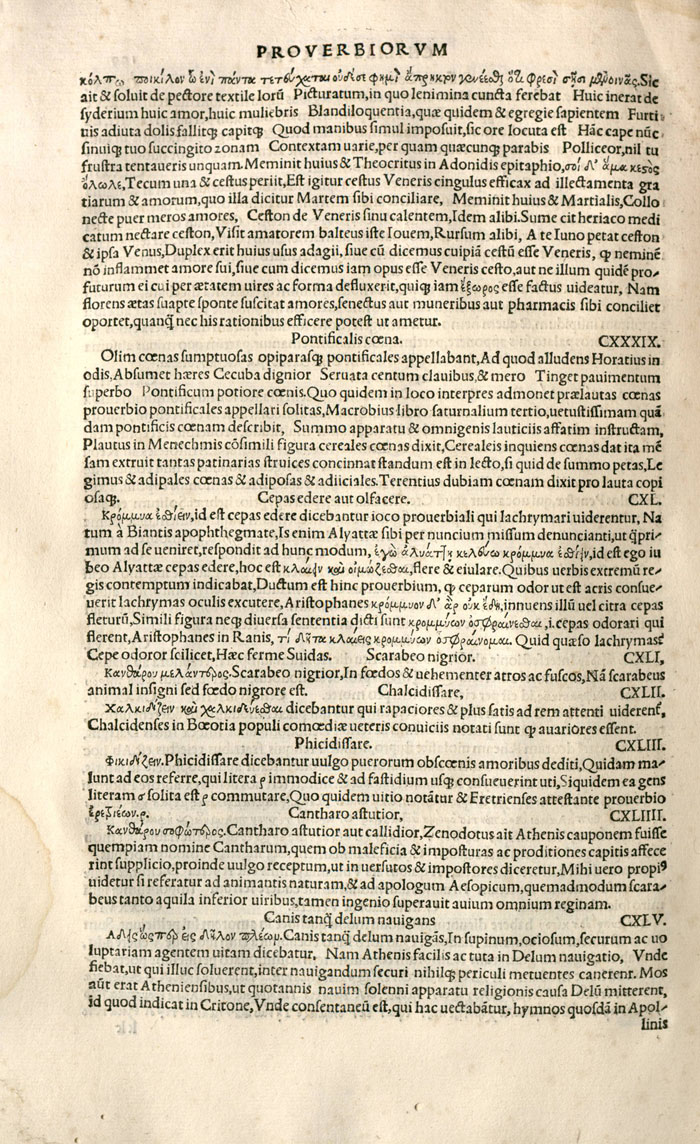 PROVERBIORVM
κόλπῳ ποικίλον ᾧ ἐνὶ πάντα τετεύχαται οὐδέ σε φημὶ ἄπρηκτον γενέεσθαι ὅτι φρεσὶ σῇσι μενοινᾷς. Sic
ait & soluit de pectore textile lorū Picturatum, in quo lenimina cuncta ferebat Huic inerat de
syderium huic amor, huic muliebris Blandiloquentia, quæ quidem & egregie sapientem Furti
uis adiuta dolis fallitqȝ capitqȝ Quod manibus simul imposuit, sic ore locuta est Hāc cape nūc
sinuiqȝ tuo succingito zonam Contextam uarie, per quam quæcunqȝ parabis Polliceor, nil tu
frustra tentaueris unquam. Meminit huius & Theocritus in Adonidis epitaphio, σοὶ δ' ἅμα κεστὸς
ὄλωλε, Tecum una & cestus periit, Est igitur cestus Veneris cingulus efficax ad illectamenta gra
tiarum & amorum, quo illa dicitur Martem sibi conciliare, Meminit huius & Martialis, Collo
necte puer meros amores, Ceston de Veneris sinu calentem, Idem alibi. Sume citheriaco medi
catum nectare ceston, Vssit amatorem balteus iste Iouem, Rursum alibi, A te Iuno petat ceston
& ipsa Venus, Duplex erit huius usus adagii, siue cū dicemus cuipiā cestū esse Veneris, ꝙ neminē
nō inflammet amore sui, siue cum dicemus iam opus esse Veneris cesto, aut ne illum quidē pro-
futurum ei cui per ætatem uires ac forma defluxerit, quiqȝ iam ἔξωρος esse factus uideatur, Nam
florens ætas suapte sponte suscitat amores, senectus aut muneribus aut pharmacis sibi conciliet
oportet, quanqȝ nec his rationibus efficere potest ut ametur.
Pontificalis cœna. CXXXIX.
Olim cœnas sumptuosas opiparasqȝ pontificales appellabant, Ad quod alludens Horatius in
odis, Absumet hæres Cecuba dignior Seruata centum clauibus, & mero Tinget pauimentum
superbo Pontificum potiore cœnis. Quo quidem in loco interpres admonet prælautas cœnas
prouerbio pontificales appellari solitas, Macrobius libro saturnalium tertio, uetustissimam quā
dam pontificis cœnam describit, Summo apparatu & omnigenis lauticiis affatim instructam,
Plautus in Menechmis cōsimili figura cereales cœnas dixit, Cerealeis inquiens cœnas dat ita mē
sam extruit tantas patinarias struices concinnat standum est in lecto, si quid de summo petas, Le
gimus & adipales cœnas & adiposas & adiiciales. Terentius dubiam cœnam dixit pro lauta copi
osaqȝ. Cepas edere aut olfacere. CXL.
Κρόμμυα ἐσθίειν, id est cepas edere dicebantur ioco prouerbiali qui lachrymari uiderentur, Na
tum à Biantis apophthegmate, Is enim Alyattæ sibi per nuncium missum denuncianti, ut qȝpri-
mum ad se ueniret, respondit ad hunc modum, ἐγὼ ἀλυάτῃ κελεύω κρόμμυα ἐσθίειν, id est ego iu
beo Alyattæ cepas edere, hoc est κλαίειν καὶ οἰμώζεσθαι, flere & eiulare. Quibus uerbis extremū re-
gis contemptum indicabat, Ductum est hinc prouerbium, ꝙ ceparum odor ut est acris consue-
uerit lachrymas oculis excutere, Aristophanes κρόμμυον δ' ἂρ οὐκ ἔδει, innuens illū uel citra cepas
fleturū, Simili figura neqȝ diuersa sententia dicti sunt κρομμύων ὀσφραίνεσθαι, .i. cepas odorari qui
flerent, Aristophanes in Ranis, τί δῆτα κλαίεις κρομμύων ὀσφραίνομαι. Quid quæso lachrymas?
Cepe odoror scilicet, Hæc ferme Suidas. Scarabeo nigrior. CXLI,
Κανθάρου μελάντερος. Scarabeo nigrior, In fœdos & uehementer atros ac fuscos, Nā scarabeus
animal insigni sed fœdo nigrore est. Chalcidissare, CXLII.
Χαλκιδίζειν καὶ χαλκιδεύεσθαι dicebantur qui rapaciores & plus satis ad rem attenti uiderent̃,
Chalcidenses in Bœotia populi comœdiæ ueteris conuiciis notati sunt ꝙ auariores essent.
Phicidissare. CXLIII.
Φικιδίζειν. Phicidissare dicebantur uulgo puerorum obscœnis amoribus dediti, Quidam ma-
lunt ad eos referre, qui litera ρ immodice & ad fastidium usqȝ consueuerint uti, Siquidem ea gens
literam σ solita est ρ commutare, Quo quidem uitio notātur & Eretrienses attestante prouerbio
ἐρετριέων.ρ. Cantharo astutior, CXLIIII.
Κανθάρου σοφώτερος. Cantharo astutior aut callidior, Zenodotus ait Athenis cauponem fuisse
quempiam nomine Cantharum, quem ob maleficia & imposturas ac proditiones capitis affece
rint supplicio, proinde uulgo receptum, ut in uersutos & impostores diceretur, Mihi uero propiꝰ
uidetur si referatur ad animantis naturam, & ad apologum Aesopicum, quemadmodum scara-
beus tanto aquila inferior uiribus, tamen ingenio superauit auium omnium reginam.
Canis tanqȝ delum nauigans CXLV.
εἰς δῆλον πλέων. Canis tanqȝ delum nauigās, In supinum, ociosum, securum ac uo
luptariam agentem uitam dicebatur, Nam Athenis facilis ac tuta in Delum nauigatio, Vnde
fiebat, ut qui illuc soluerent, inter nauigandum securi nihilqȝ periculi metuentes canerent. Mos
aūt erat Atheniensibus, ut quotannis nauim solenni apparatu religionis causa Delū mitterent,
id quod indicat in Critone, Vnde consentaneū est, qui hac uectabātur, hymnos quosdā in Apol-
linis